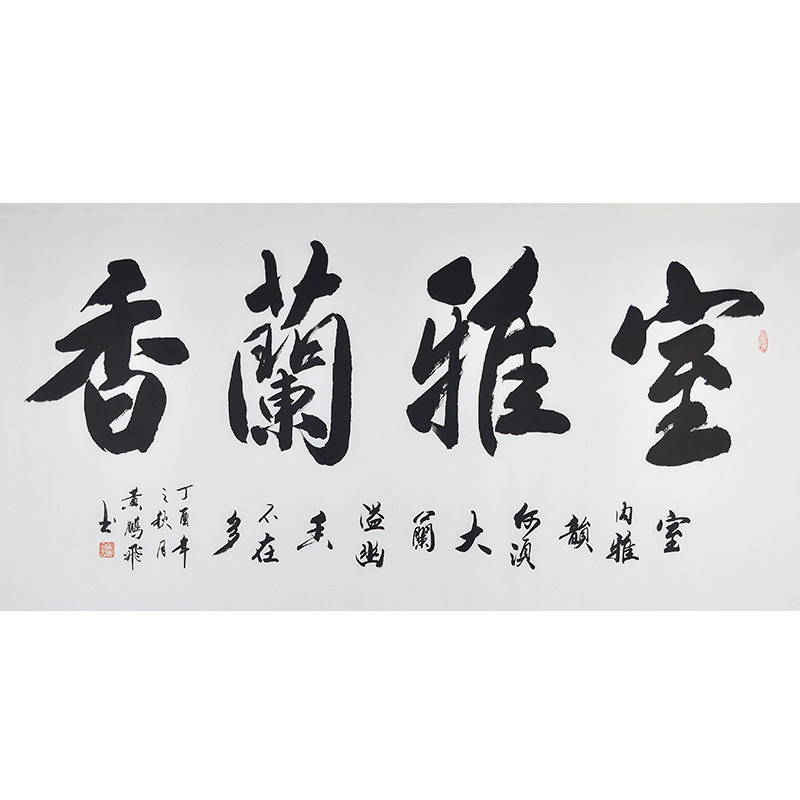 室雅蘭香
室内雅韻何須大蘭溢幽香不在多
丁酉年
之秋月
黄鵬飛
书